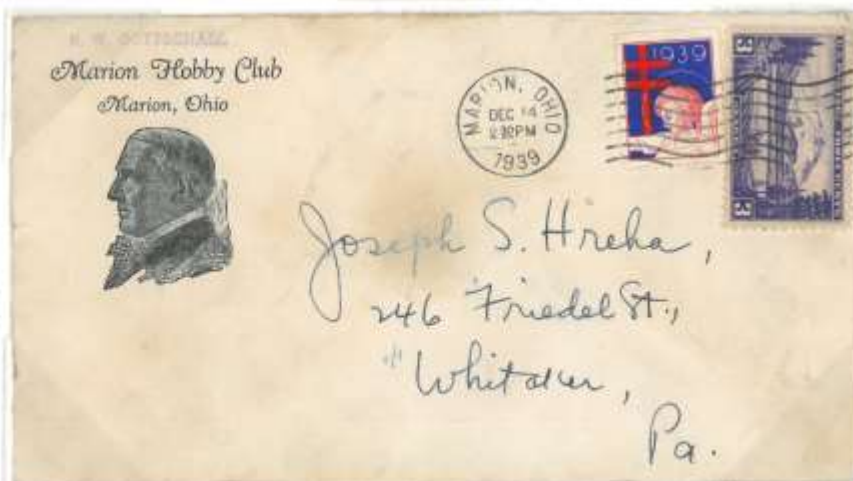 Marion Hobby Club
Marion, Ohio
MARION, OHIO
DEC 14
1939
1939
3
3
Joseph S. Hreha,
246 Friedel St.,
Whitaker,
Pa.